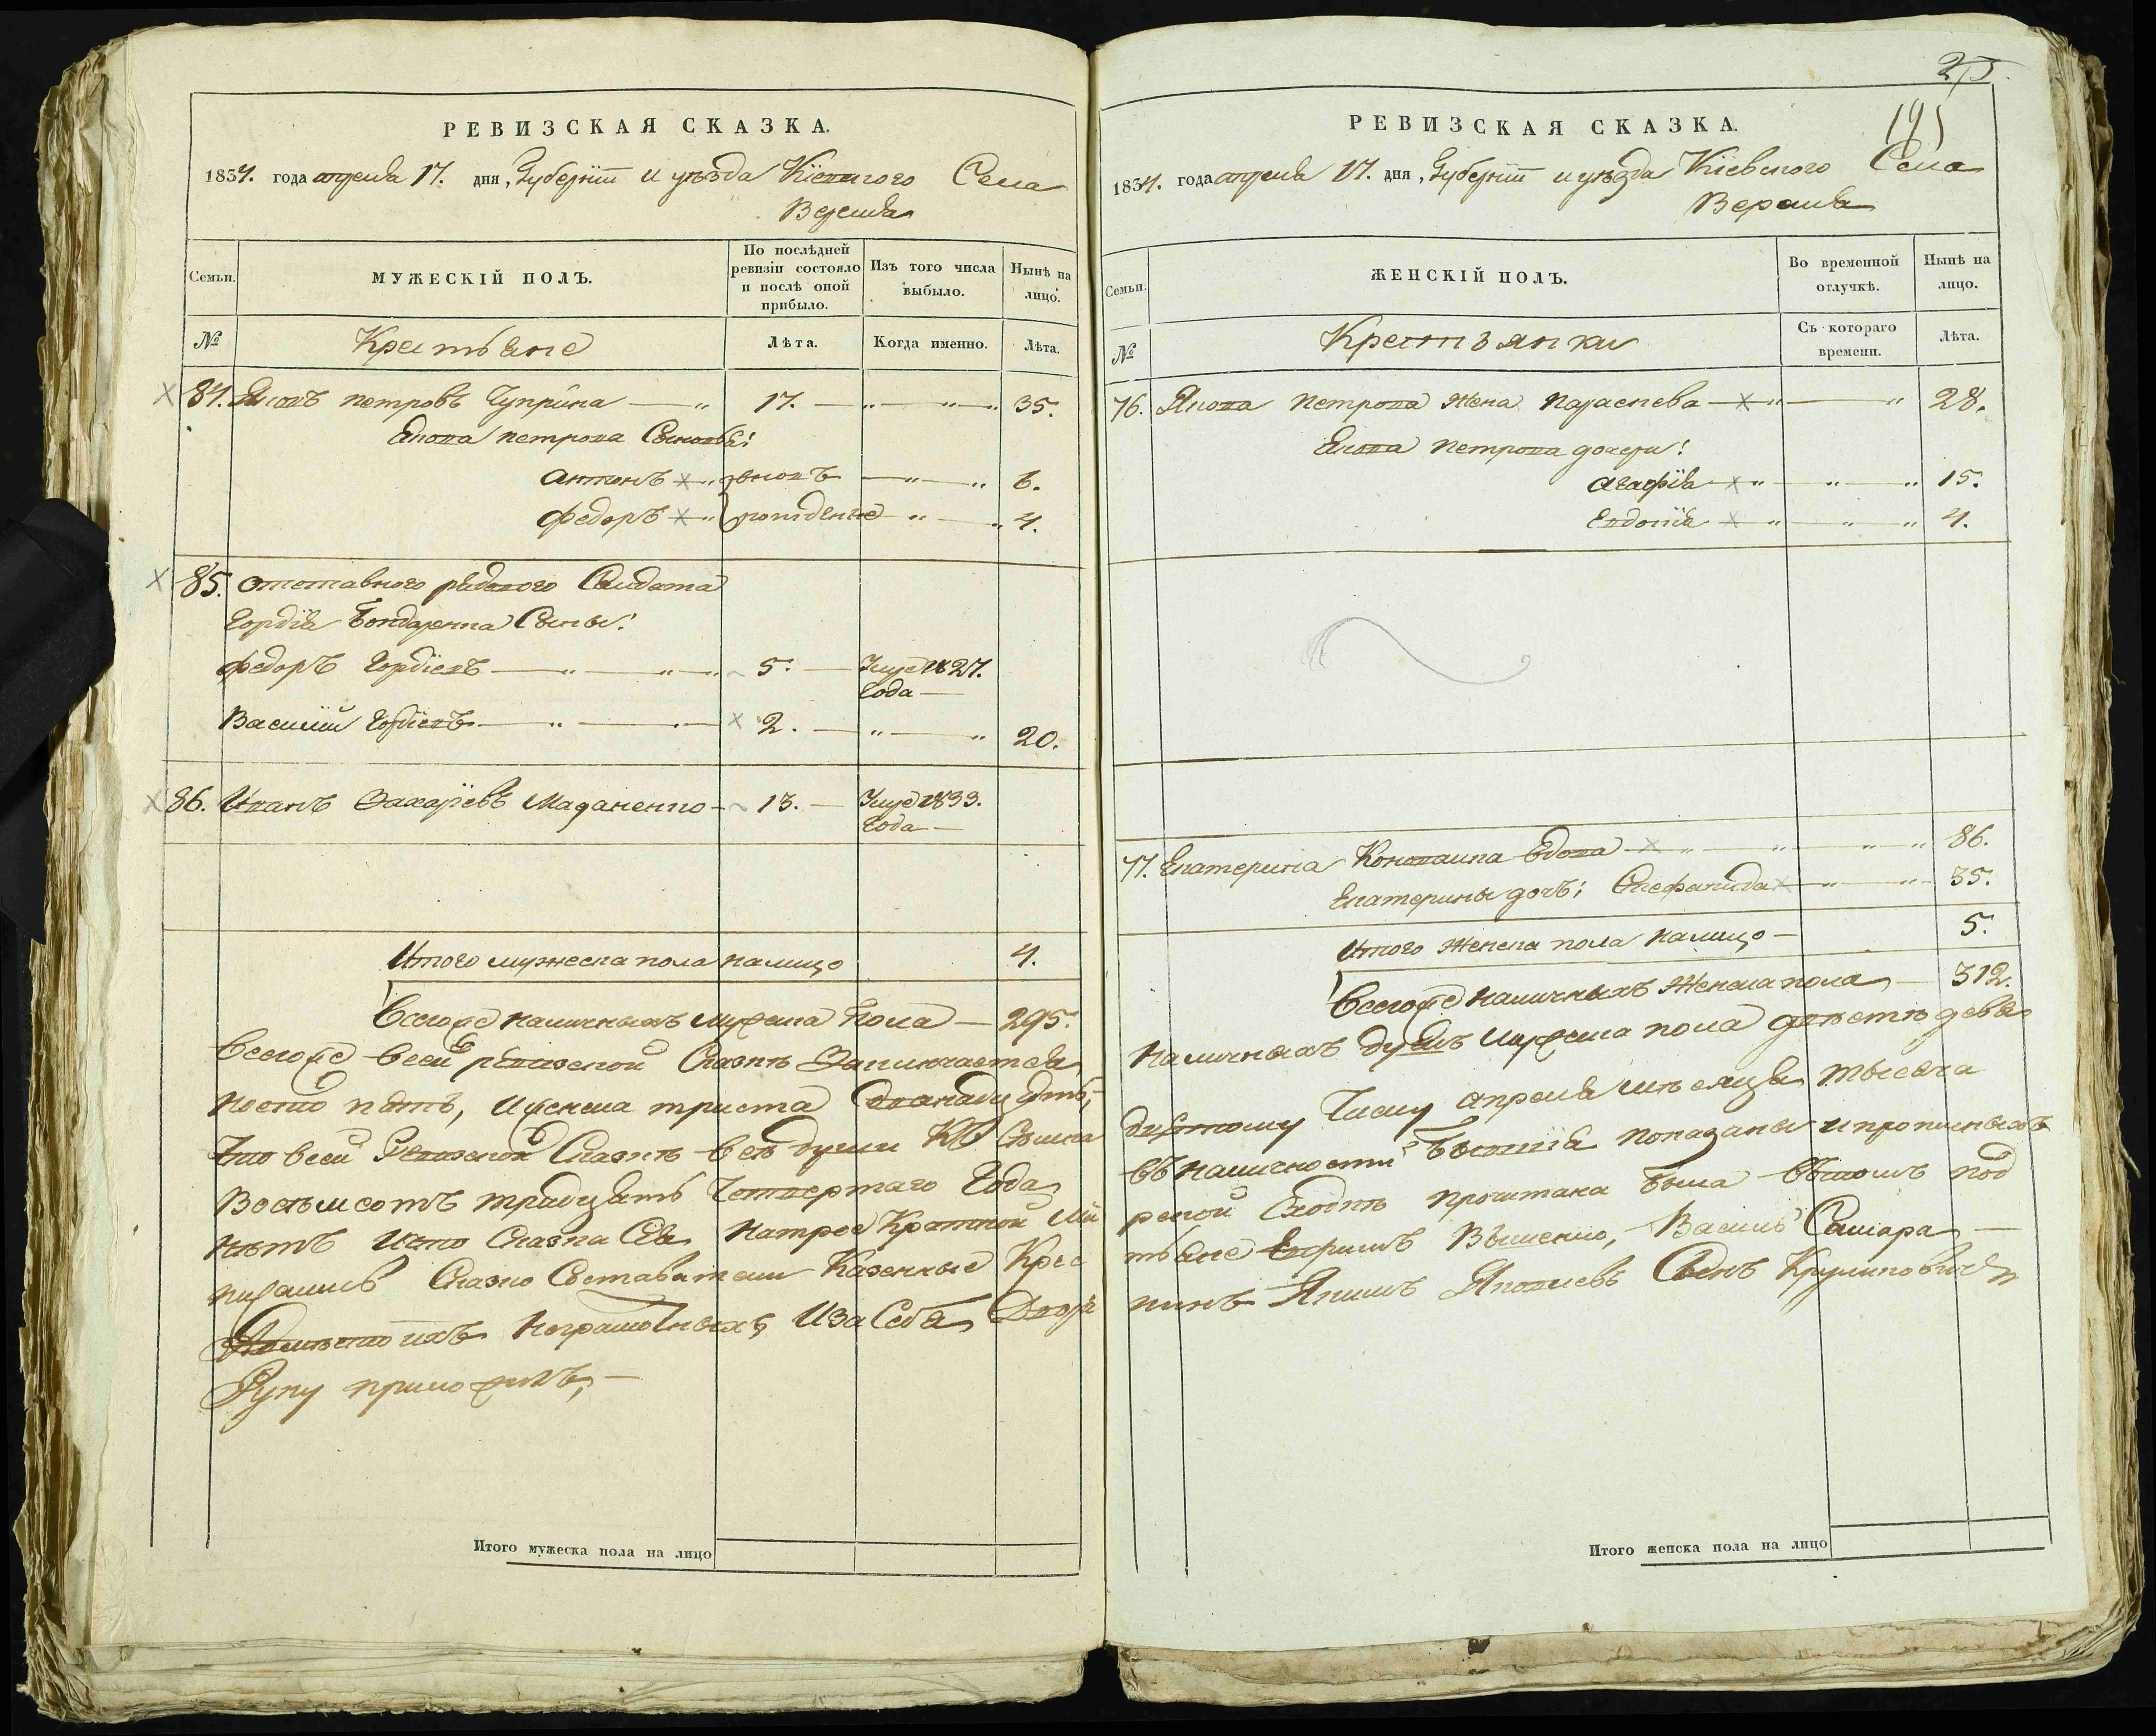 РЕВИЗСКАЯ СКАЗКА.
1834. года апреля 17. дня, Губернiи и уѣзда Кiевского Села
Веремья
Семьи.
МУЖЕСКIЙ ПОЛЪ.
По послѣдней ревизiи состояло и послѣ оной прибыло.
Изъ того числа выбыло.
Нынѣ на лицо.
№
Крестьяне
Лѣта.
Когда именно.
Лѣта.
84. Яковъ петровъ Чуприна 17. 35.
Якова петрова Сыновья:
антонъ вновь 6.
федоръ рожденные 4.
85. отставного рядового Салдата
Гордiя Бондаренка Сыны:
федоръ Гордiевъ 5. Умре 1827.
Года
Василiй Гордiевъ 2. 20.
86. Иванъ Захарiевъ 13. Умре 1833.
Года
Итого мужеска пола налицо 4.
Всегоже наличныхъ мужеска Пола 295.
Всегоже Всей ревизской Сказкѣ Заключается
носто пять, иженска триста двѣнадцять,
Что всей Ревизской Сказкѣ всѣ души Къ
Восемсотъ тридцять Четвертаго Года
нѣтъ Что Сказка Сiя Натрое Кратной
Сказко Съставители Казенные Крес
ихъ неграмотныхъ Иза Себя Двора
Руку приложилъ,
25.
195
РЕВИЗСКАЯ СКАЗКА.
1834. года апреля 17. дня, Губернiи и уѣзда Кiевского Села
Веремья
Семьи.
ЖЕНСКIЙ ПОЛЪ.
Во временной отлучкѣ.
Нынѣ на лицо.
№
Крестьянки
Съ котораго времени.
Лѣта.
76. Якова Петрова жена Параскева 28.
Якова Петрова дочери:
Агафiя 15.
Евдокiя 4.
77. Екатерина вдова 86.
Екатерины дочь: Стефанида 35.
Итого женска пола налицо 5.
Всегоже наличныхъ Женска пола 312.
Наличныхъ душъ мужеска пола двѣстѣ девя
Числу апреля мѣсяца тысяча
въ наличности показаны ипрописныхъ
рской Сходкѣ прочитана была вътомъ под
тьяне Ефримъ Василь Самара
нинъ Якимъ Яковлевъ Сынъ
Итого мужеска пола на лицо
Итого женска пола на лицо